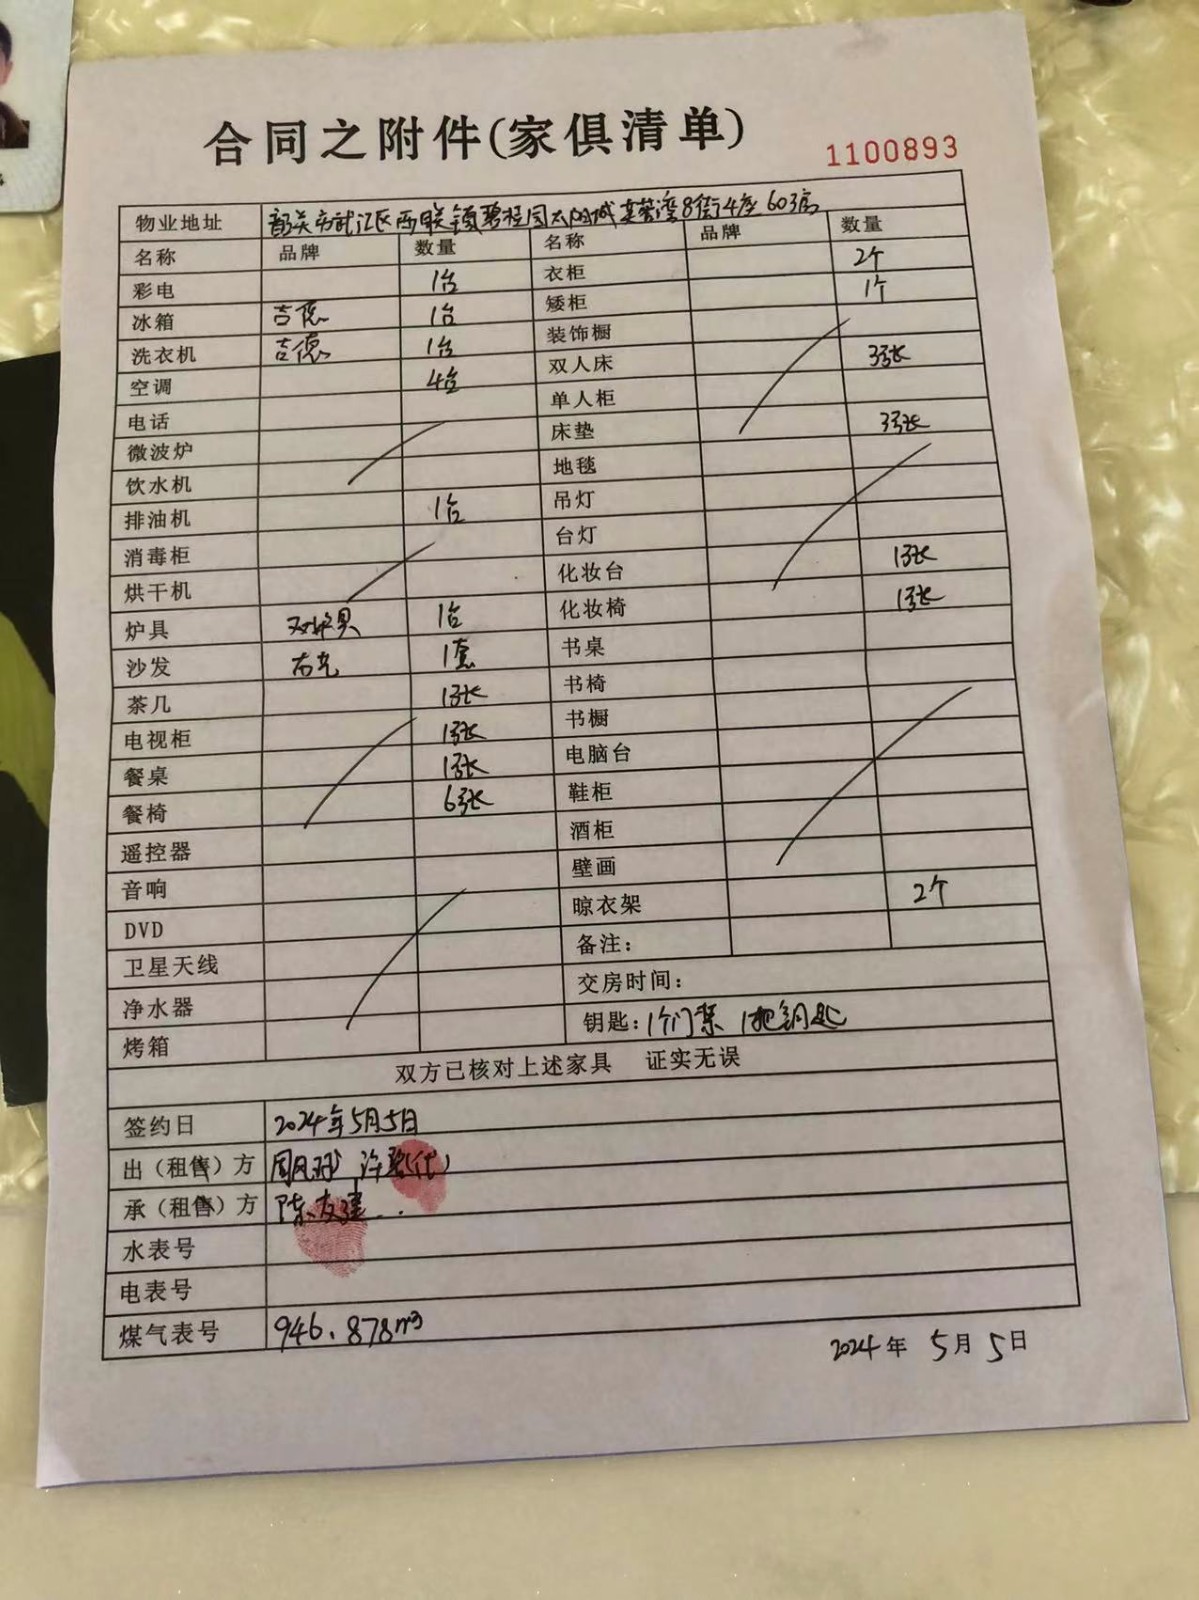 合同之附件(家俱清单)
1100893
物业地址 韶关市武江区西联镇碧桂园太阳城芙蓉湾8街4座603房
名称 品牌 数量 名称 品牌 数量
彩电 1台 衣柜 2个
冰箱 吉德 1台 矮柜 1个
洗衣机 吉德 1台 装饰橱
空调 4台 双人床 3张
电话 单人柜
微波炉 床垫 3张
饮水机 地毯
排油机 1台 吊灯
消毒柜 台灯
烘干机 化妆台 1张
炉具 双炉具 1台 化妆椅 1张
沙发 1套 书桌
茶几 1张 书椅
电视柜 1张 书橱
餐桌 1张 电脑台
餐椅 6张 鞋柜
遥控器 酒柜
音响 壁画
DVD 晾衣架 2个
卫星天线 备注：
净水器 交房时间：
烤箱 钥匙：1个门禁 1把钥匙
双方已核对上述家具 证实无误
签约日 2024年5月5日
出（租售）方 (代)
承（租售）方 陈友建
水表号
电表号
煤气表号 946.878m³
2024年 5月 5日